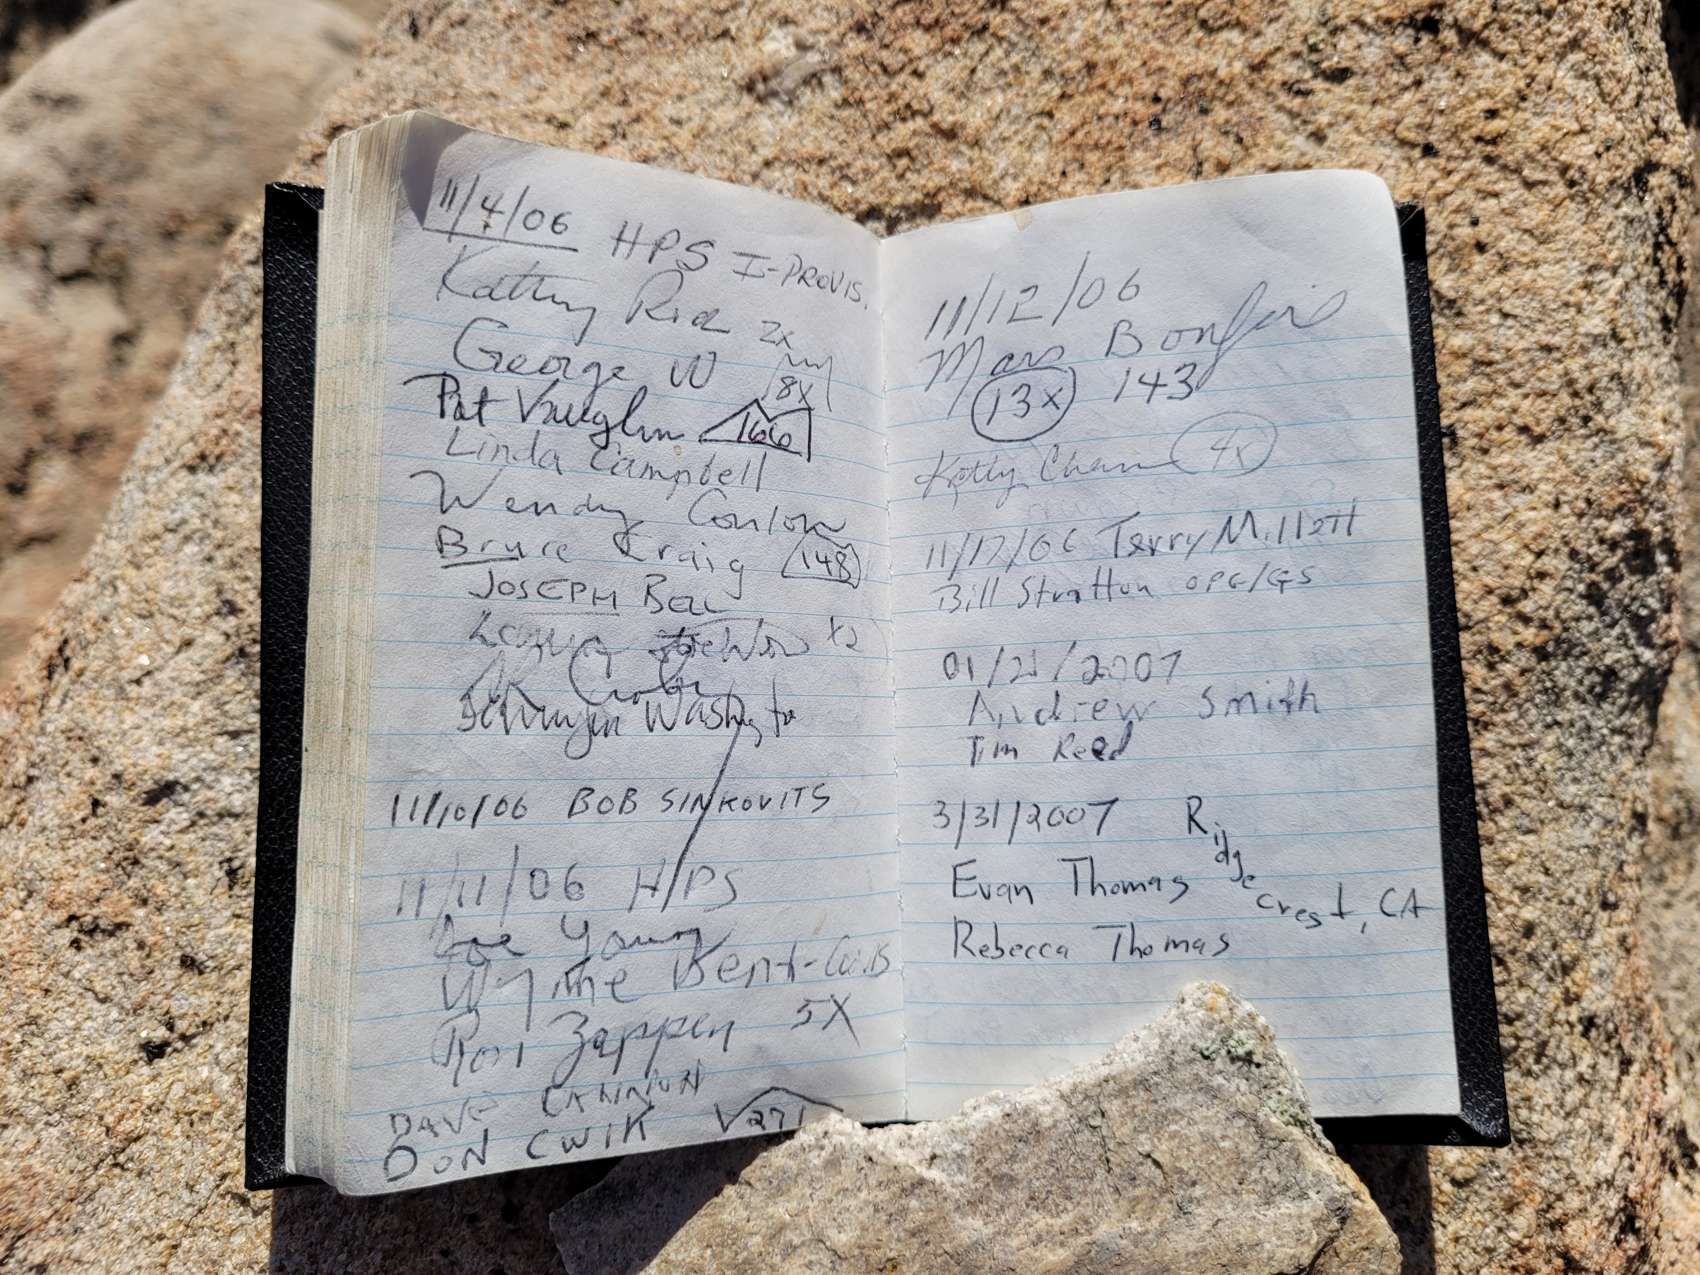 11/4/06 HPS I-PROVIS.
Kathy Rich 2x
George W 8x
Pat Vaughn 166
Linda Campbell
Wendy Conlon
Bruce Craig 148
JOSEPH BELL
x2
Washington
11/10/06 BOB SINKOVITS
11/11/06 HPS
Joe Young
Wynne Bent-
Ron Zappen 5X
DAVE CANNON
DON CWIK 271
11/12/06
Mars Bonfire
13x 143
Kathy 4x
11/17/06 Terry Millett
Bill Stratton OPG/GS
01/21/2007
Andrew Smith
Tim Reed
3/31/2007 Ridgecrest, CA
Evan Thomas
Rebecca Thomas